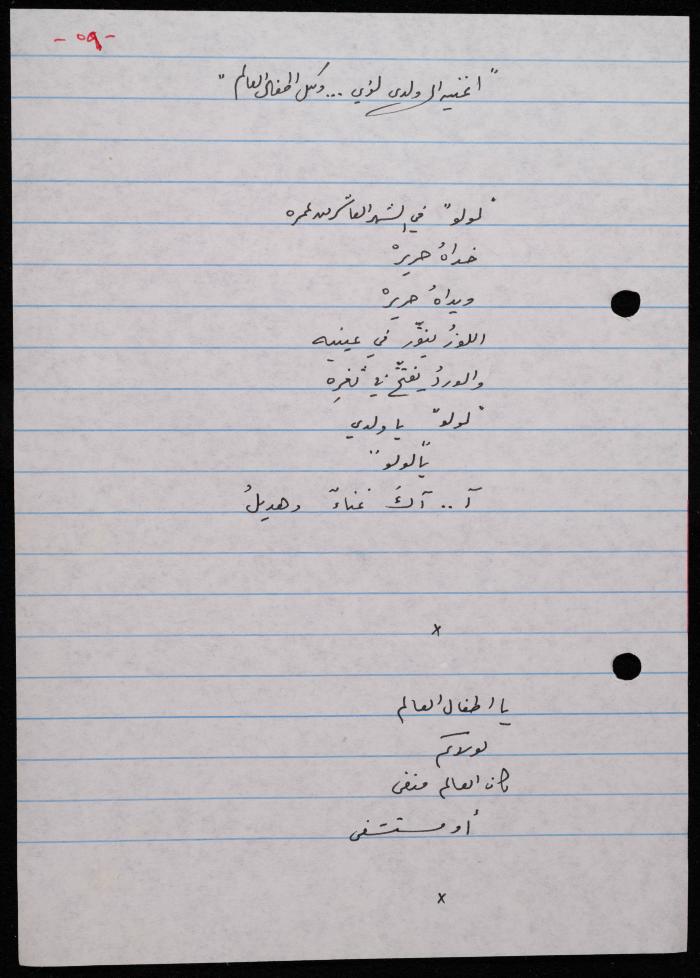 - ٥٩ -
"اغنيه الى ولدي لؤي ... وكل اطفال العالم"
"لولو" في الشهر العاشر من عمره
خداهُ حريرْ
ويداهُ حريرْ
اللوزُ ينوّر في عينيه
والوردُ يفتّح في ثغرِه
"لولو" يا ولدي
يا "لولو"
آ .. آكَ غناءٌ وهديلُ
x
يا اطفال العالم
لولاكم
كان العالم منفى
أو مستشفى
x